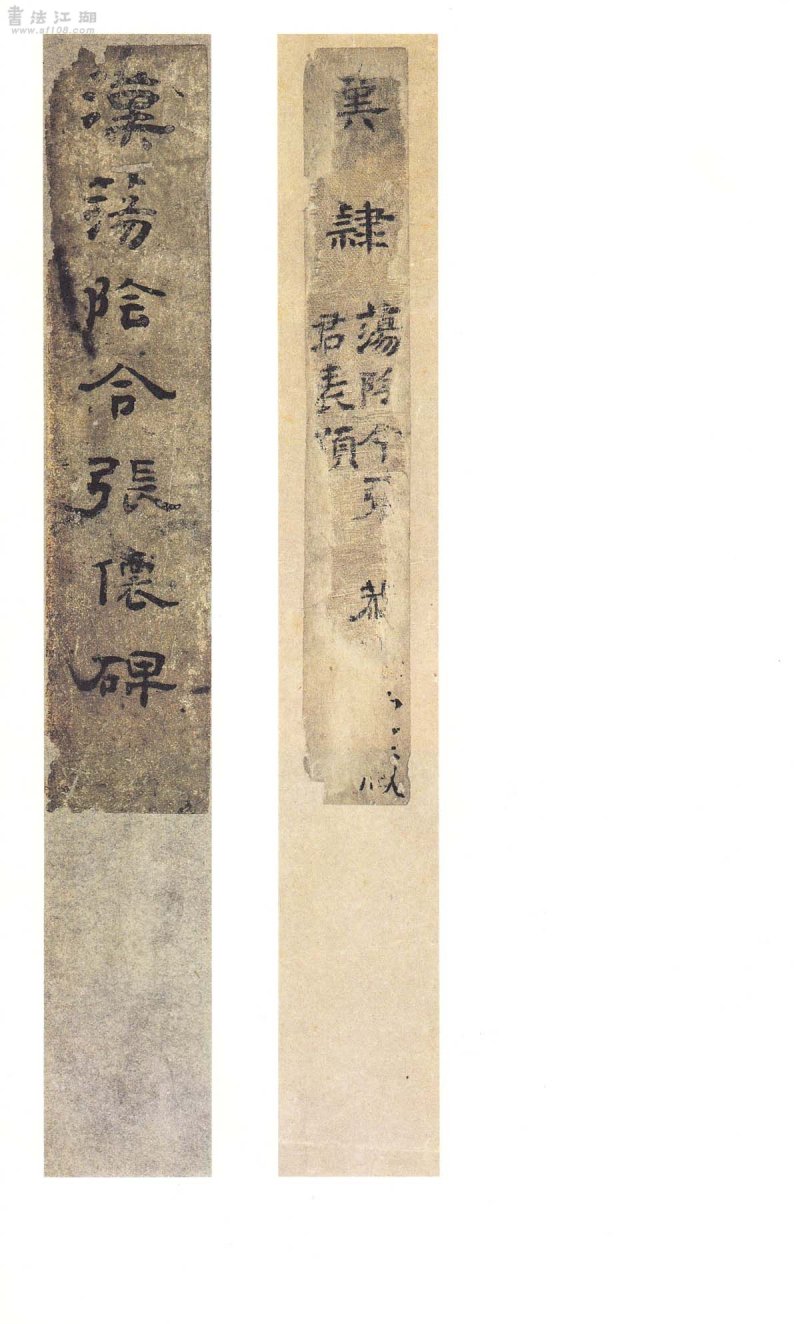 書法江湖
www.sf108.com
隸
蕩陰令張
君表頌
漢蕩陰令張僊碑